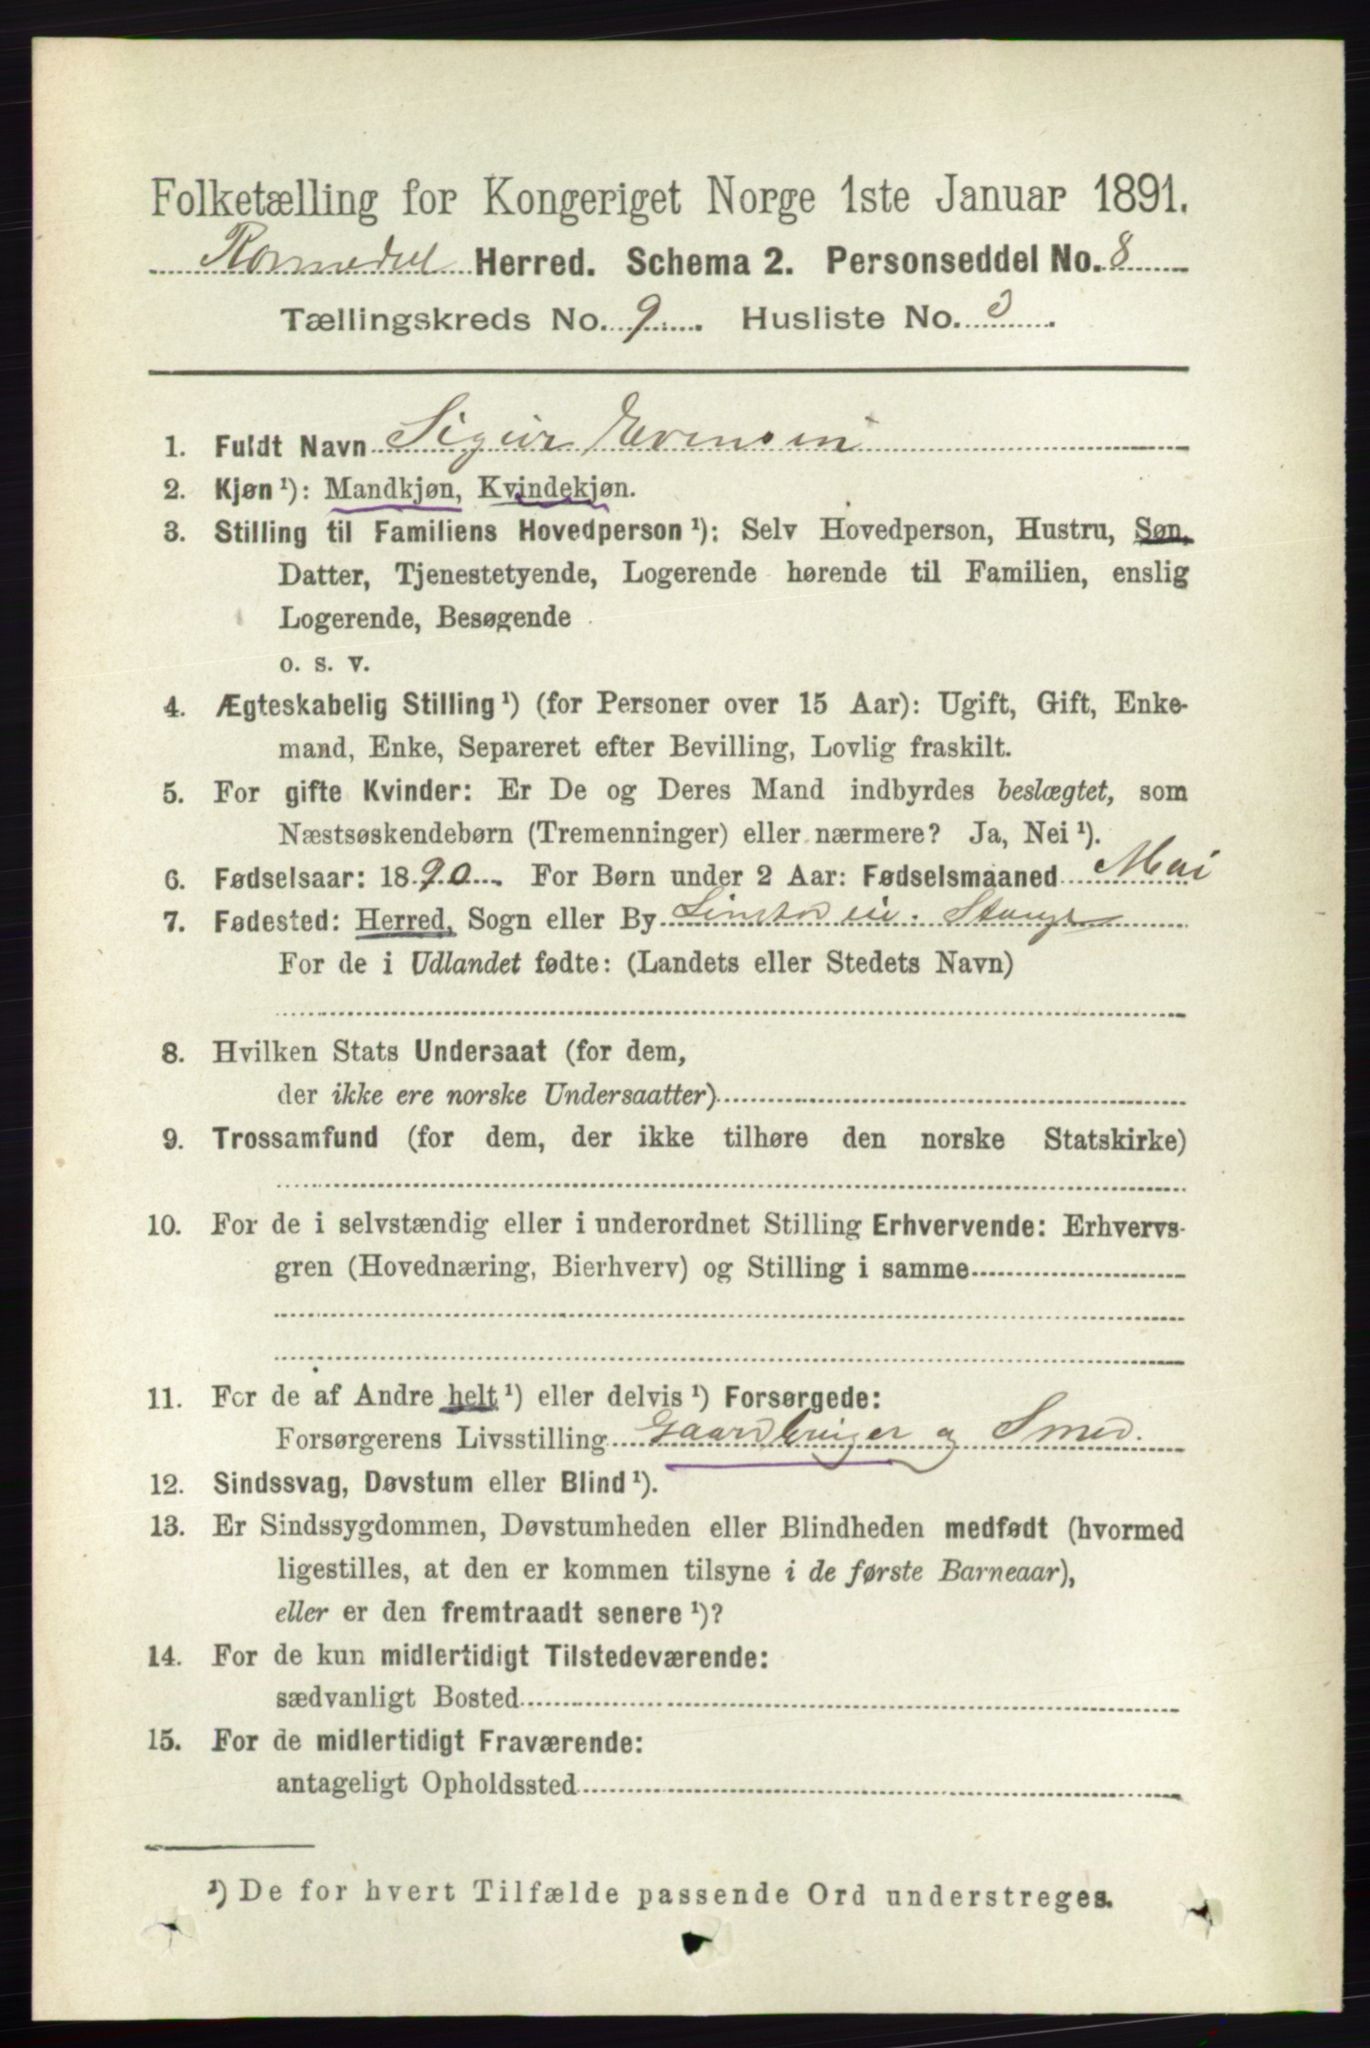 Folketælling for Kongeriget Norge 1ste Januar 1891.
Romedal Herred. Schema 2. Personseddel No. 8
Tællingskreds No. 9. Husliste No. 3.
1. Fuldt Navn Sigur Evensen
2. Kjøn¹): Mandkjøn, Kvindekjøn.
3. Stilling til Familiens Hovedperson¹): Selv Hovedperson, Hustru, Søn,
Datter, Tjenestetyende, Logerende hørende til Familien, enslig
Logerende, Besøgende
o. s. v.
4. Ægteskabelig Stilling¹) (for Personer over 15 Aar): Ugift, Gift, Enke-
mand, Enke, Separeret efter Bevilling, Lovlig fraskilt.
5. For gifte Kvinder: Er De og Deres Mand indbyrdes beslægtet, som
Næstsøskendebørn (Tremenninger) eller nærmere? Ja, Nei¹).
6. Fødselsaar: 1890. For Børn under 2 Aar: Fødselsmaaned Mai
7. Fødested: Herred, Sogn eller By Stange
For de i Udlandet fødte: (Landets eller Stedets Navn)
8. Hvilken Stats Undersaat (for dem,
der ikke ere norske Undersaatter)
9. Trossamfund (for dem, der ikke tilhøre den norske Statskirke)
10. For de i selvstændig eller i underordnet Stilling Erhvervende: Erhvervs-
gren (Hovednæring, Bierhverv) og Stilling i samme
11. For de af Andre helt¹) eller delvis¹) Forsørgede:
Forsørgerens Livsstilling Gaardbruger og Smed.
12. Sindssvag, Døvstum eller Blind¹).
13. Er Sindssygdommen, Døvstumheden eller Blindheden medfødt (hvormed
ligestilles, at den er kommen tilsyne i de første Barneaar),
eller er den fremtraadt senere¹)?
14. For de kun midlertidigt Tilstedeværende:
sædvanligt Bosted
15. For de midlertidigt Fraværende:
antageligt Opholdssted
¹) De for hvert Tilfælde passende Ord understreges.